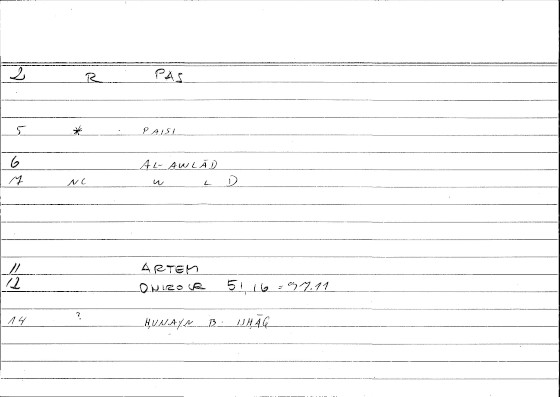 2 R PAS
5 * PAISI
6 AL-AWLĀD
7 NL W L D
11 ARTEM
12 ONIROCR 51,16 = 97.11
14 ? ḤUNAYN B. ISḤĀQ